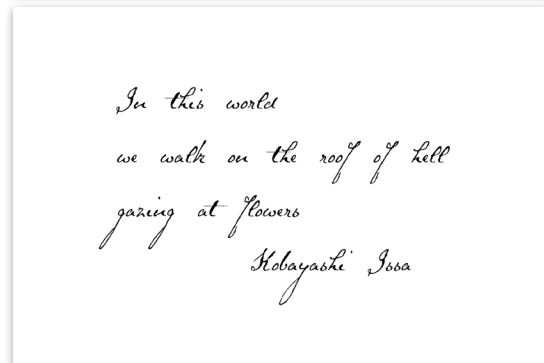 In this world
we walk on the roof of hell
gazing at flowers
Kobayashi Issa